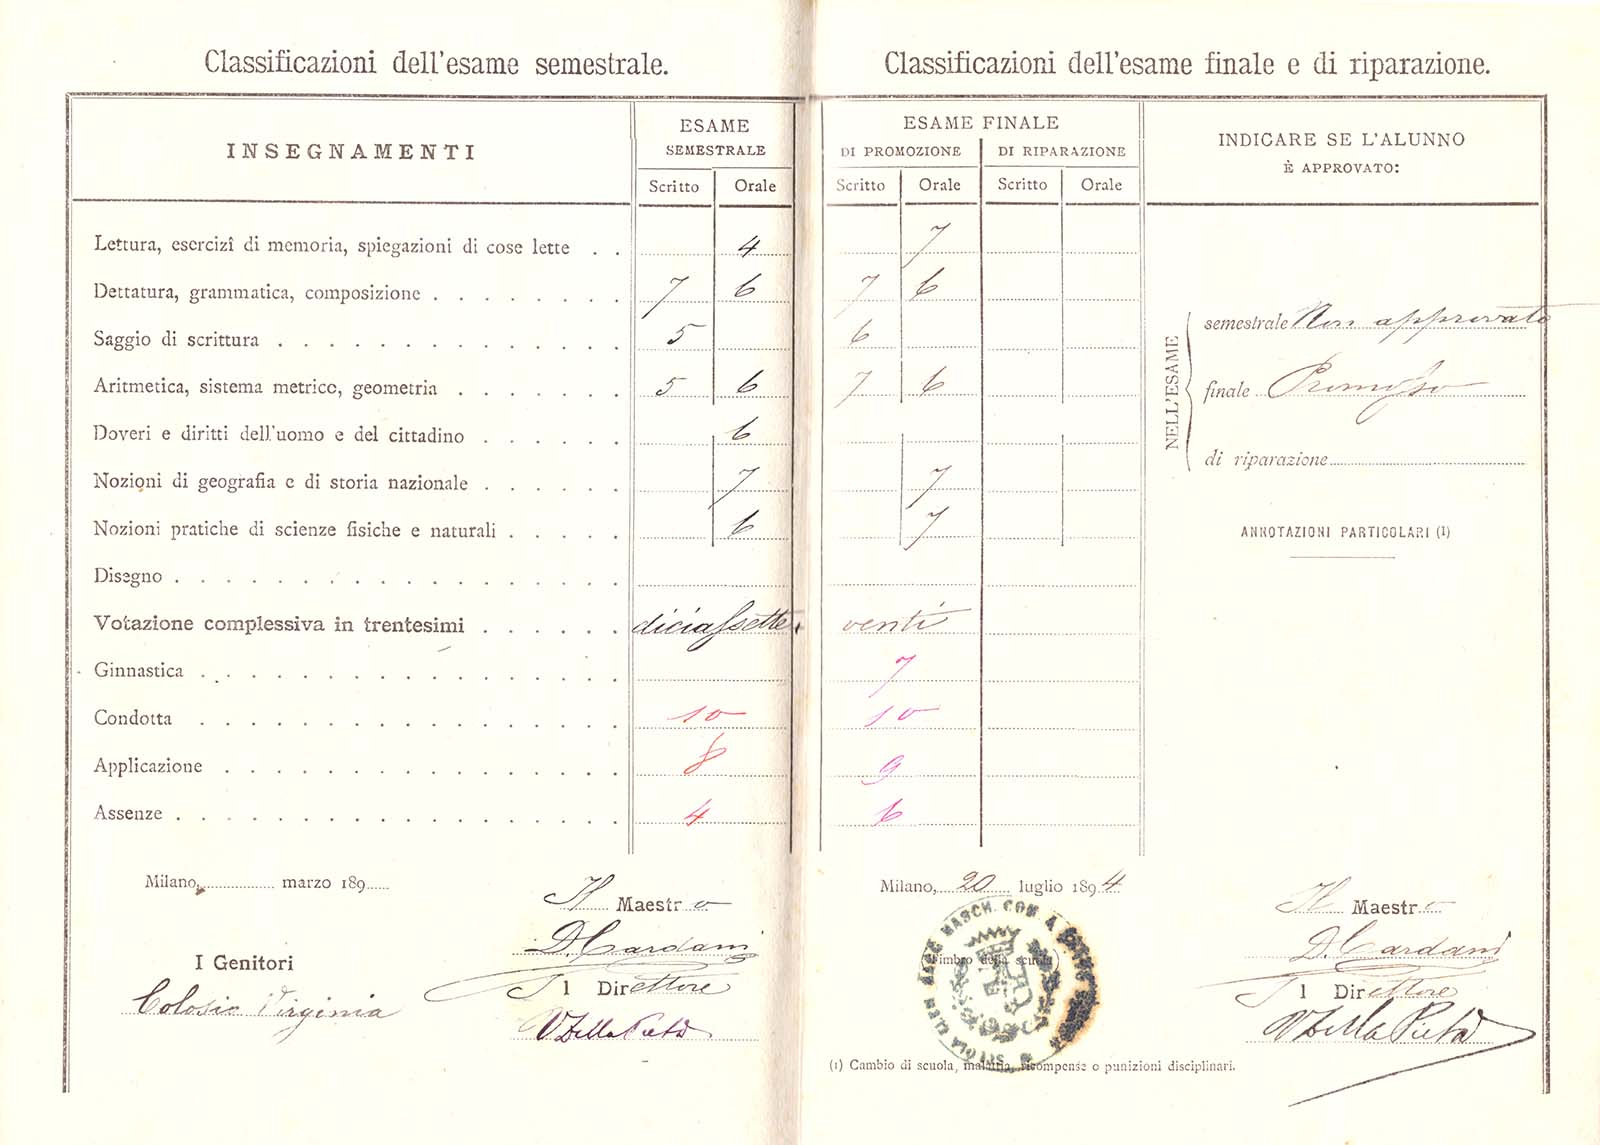 Classificazioni dell'esame semestrale.
INSEGNAMENTI
ESAME
SEMESTRALE
Scritto Orale
Lettura, esercizî di memoria, spiegazioni di cose lette . . 4
Dettatura, grammatica, composizione . . . . . . . . 7 6
Saggio di scrittura . . . . . . . . . . . . . . 5
Aritmetica, sistema metrico, geometria . . . . . . . 5 6
Doveri e diritti dell'uomo e del cittadino . . . . . . 6
Nozioni di geografia e di storia nazionale . . . . . . 7
Nozioni pratiche di scienze fisiche e naturali . . . . . 6
Disegno . . . . . . . . . . . . . . . . . .
Votazione complessiva in trentesimi . . . . . . diciassette
Ginnastica . . . . . . . . . . . . . . . . .
Condotta . . . . . . . . . . . . . . . . . 10
Applicazione . . . . . . . . . . . . . . . . 8
Assenze . . . . . . . . . . . . . . . . . . 4
Milano, marzo 189
Il Maestro
D. Cardani
I Genitori
Colosio Virginia
Il Direttore
V Della Pietà
Classificazioni dell'esame finale e di riparazione.
ESAME FINALE
DI PROMOZIONE DI RIPARAZIONE
Scritto Orale Scritto Orale
7
7 6
6
7 6
7
7
venti
7
10
9
6
INDICARE SE L'ALUNNO
È APPROVATO:
NELL'ESAME
semestrale Non approvato
finale Promosso
di riparazione
ANNOTAZIONI PARTICOLARI (1)
Milano, 20 luglio 1894
Il Maestro
D. Cardani
Il Direttore
V Della Pietà
Timbro della scuola)
SCUOLA ELEM MASCH. COM. A
(1) Cambio di scuola, malattia, ricompense o punizioni disciplinari.